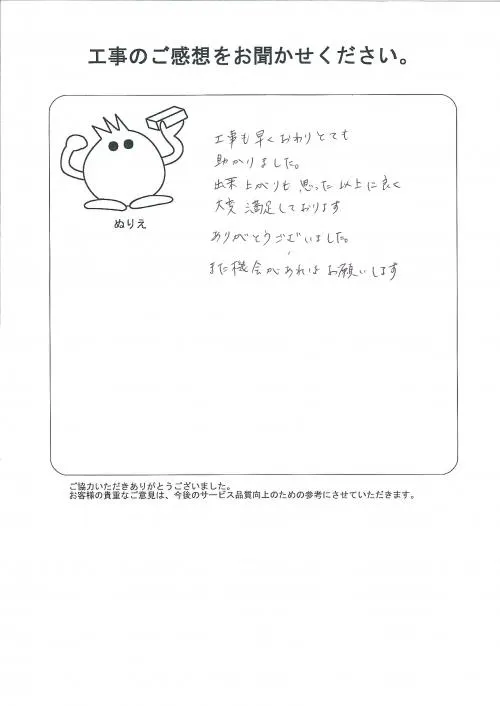 工事のご感想をお聞かせください。
工事も早くおわりとても
助かりました。
出来上がりも思った以上に良く
大変満足しております
ありがとうございました。
また機会があればお願いします
ぬりえ
ご協力いただきありがとうございました。
お客様の貴重なご意見は、今後のサービス品質向上のための参考にさせていただきます。